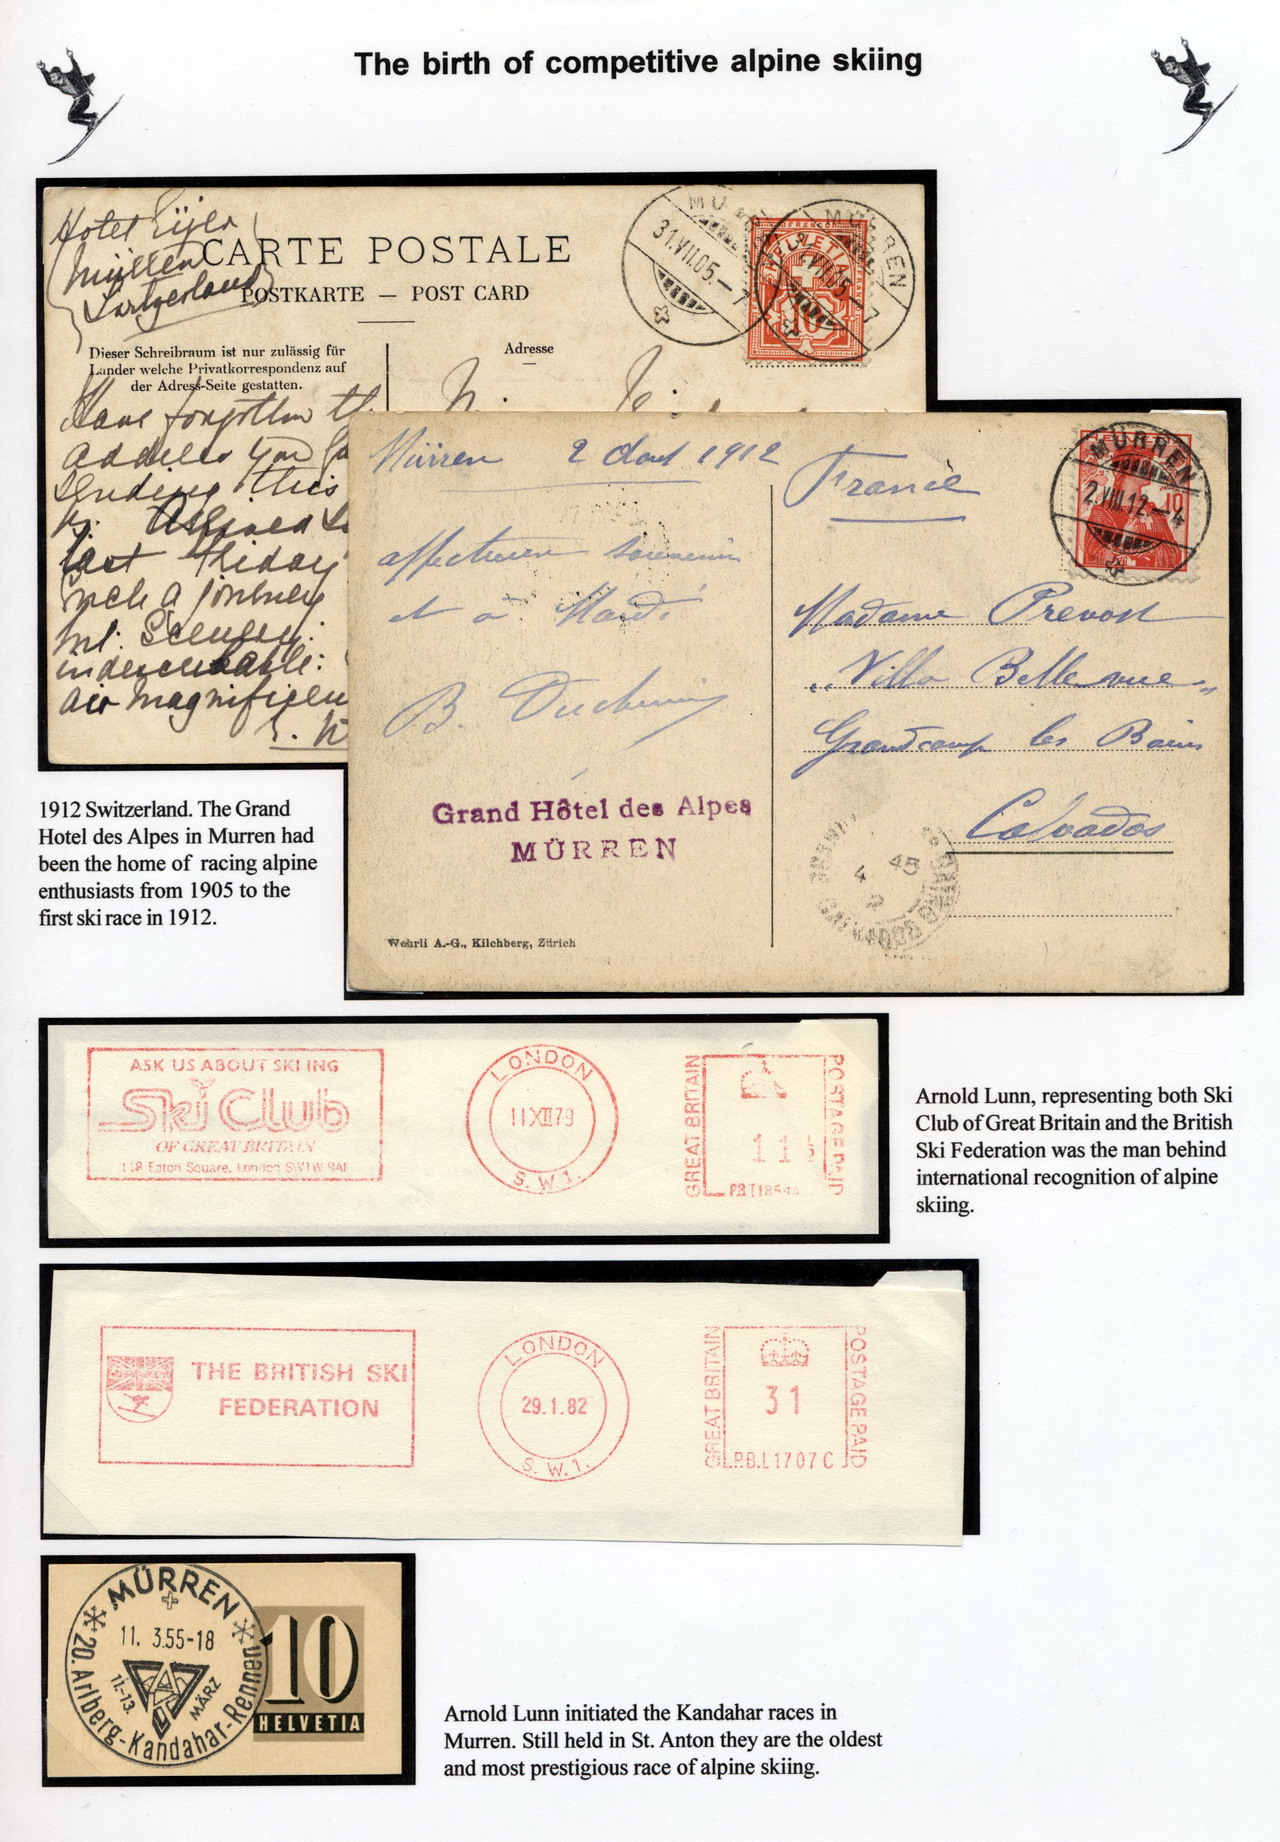 The birth of competitive alpine skiing
Hotel Eiger
Mürren
Switzerland
CARTE POSTALE
POSTKARTE — POST CARD
MÜRREN
31.VII.05.–7
MÜRREN
VII.05.–7
HELVETIA
10
Dieser Schreibraum ist nur zulässig für
Länder welche Privatkorrespondenz auf
der Adress-Seite gestatten.
Adresse
Have forgotten th
address you
sending this
last Friday
Such a journey
Scenery
indescribable:
air magnificen
Mürren 2 Aout 1912
France
MÜRREN
2.VIII.12.–4
10
affectueux souvenir
et à Mardi
B.
Madame Prevost
„Villa Bellevue„
Grandcamp les Bains
Calvados
Grand Hôtel des Alpes
MÜRREN
Wehrli A.-G., Kilchberg, Zürich
1912 Switzerland. The Grand
Hotel des Alpes in Murren had
been the home of racing alpine
enthusiasts from 1905 to the
first ski race in 1912.
ASK US ABOUT SKIING
Ski Club
OF GREAT BRITAIN
118 Eaton Square, London SW1W 9AF
LONDON
11XII79
S.W.1.
GREAT BRITAIN
11½
POSTAGE PAID
Arnold Lunn, representing both Ski
Club of Great Britain and the British
Ski Federation was the man behind
international recognition of alpine
skiing.
THE BRITISH SKI
FEDERATION
LONDON
29.1.82
S.W.1.
GREAT BRITAIN
31
P.B.L1707C
POSTAGE PAID
MÜRREN
11. 3.55-18
11.-13. MÄRZ
20. Arlberg-Kandahar-Rennen
10
HELVETIA
Arnold Lunn initiated the Kandahar races in
Murren. Still held in St. Anton they are the oldest
and most prestigious race of alpine skiing.